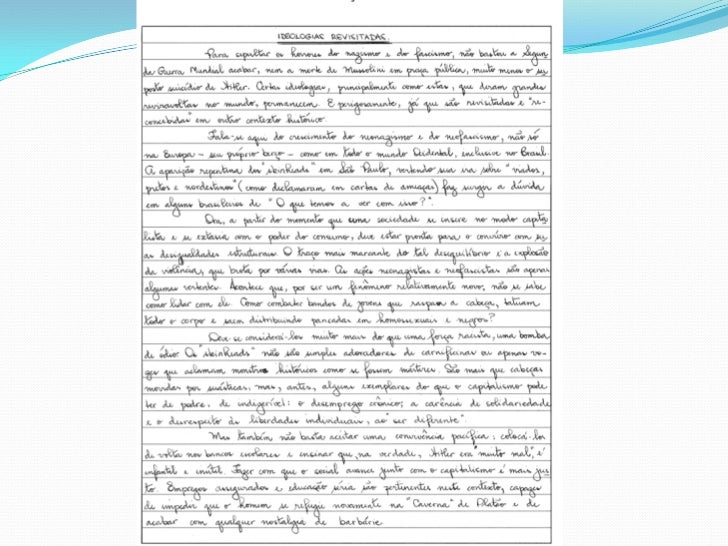 IDEOLOGIAS REVISITADAS.
Para sepultar os horrores do nazismo e do fascismo, não bastou a Segun
da Guerra Mundial acabar, nem a morte de Mussolini em praça pública, muito menos o su
posto suicídio de Hitler. Certas ideologias, principalmente como estas, que deram grandes
reviravoltas no mundo, permanecem. E perigosamente, já que são revisitadas e "re-
concebidas" em outro contexto histórico.
Fala-se aqui do crescimento do neonazismo e do neofascismo, não só
na Europa - seu próprio berço - como em todo o mundo Ocidental, inclusive no Brasil.
A aparição repentina dos "skinheads" em São Paulo, vertendo sua ira sobre "viados,
pretos e nordestinos" (como declamaram em cartas de ameaças) faz surgir a dúvida
em alguns brasileiros de "O que temos a ver com isso?".
Ora, a partir do momento que uma sociedade se insere no modo capita
lista e se extasia com o poder do consumo, deve estar pronta para o convívio com su
as desigualdades estruturais. O traço mais marcante do tal desequilíbrio é a explosão
da violência, que brota por várias vias. As ações neonazistas e neofascistas são apenas
algumas vertentes. Acontece que, por ser um fenômeno relativamente novo, não se sabe
como lidar com ele. Como combater bandos de jovens que raspam a cabeça, tatuam
todo o corpo e saem distribuindo pancadas em homossexuais e negros?
Deve-se considerá-los muito mais do que uma força racista, uma bomba
de ódio. Os "skinheads" não são simples adoradores de carnificinas ou apenas vo-
zes que aclamam monstros históricos como se fossem mártires. São mais que cabeças
movidas por suásticas, mas, antes, alguns exemplares do que o capitalismo pode
ter de podre, de indigerível: o desemprego crônico; a carência de solidariedade
e o desrespeito às liberdades individuais, ao "ser diferente".
Mas também não basta aceitar uma convivência pacífica: colocá-los
de volta nos bancos escolares e ensinar que, na verdade, Hitler era "muito mal", é
infantil e inútil. Fazer com que o social avance junto com o capitalismo é mais jus
to. Empregos assegurados e educação séria são pertinentes neste contexto, capazes
de impedir que o homem se refugie novamente na "Caverna" de Platão e de
acabar com qualquer nostalgia de barbárie.